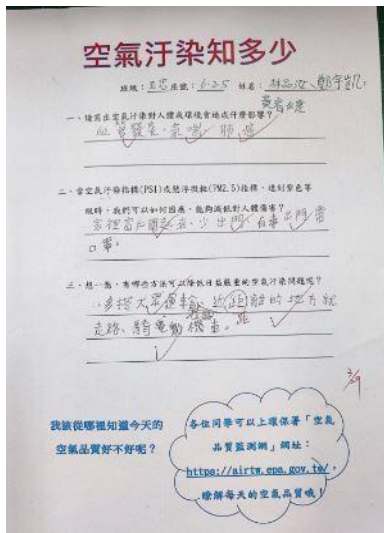 空氣汙染知多少
班級：五忠 座號：6、25 姓名：林品汝、鄭宇凱
一、請寫出空氣汙染對人體或環境會造成什麼影響？
血管發炎，氣喘，肺癌
二、當空氣汙染指標(PSI)或懸浮微粒(PM2.5)指標，達到紫色等
級時，我們可以如何因應，能夠減低對人體傷害？
家裡窗戶關起來，少出門，有事出門帶
口罩。
三、想一想，有哪些方法可以降低日益嚴重的空氣汙染問題呢？
多搭大眾運輸，近距離的地方就
走路、騎電動機車。
距
3/29
我該從哪裡知道今天的
空氣品質好不好呢？
各位同學可以上環保署「空氣
品質監測網」網址：
https://airtw.epa.gov.tw/，
瞭解每天的空氣品質哦！